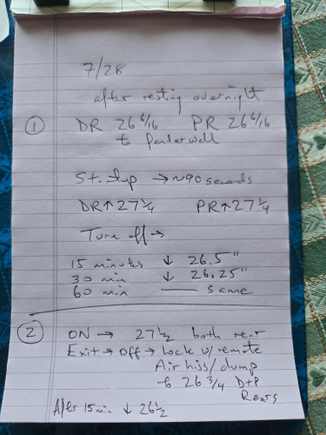 7/28
after resting overnight
① DR 26 6/16 PR 26 6/16
to fenderwell
Startup → ~90 seconds
DR↑27 1/4 PR↑27 1/4
Turn off →
15 minutes ↓ 26.5"
30 min ↓ 26.25"
60 min — same
② ON → 27 1/2 both rear
Exit → Off → Lock w/remote
Air hiss/dump
26 3/4 D+P
Rears
After 15 min ↓ 26 1/2